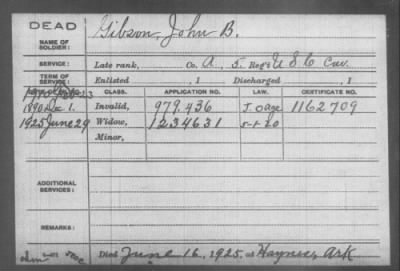 DEAD
NAME OF SOLDIER: Gibson, John B.
SERVICE: Late rank, Co. A, 5. Reg't U S C Cav.
TERM OF SERVICE: Enlisted , 1 Discharged , 1
CLASS. APPLICATION NO. LAW. CERTIFICATE NO.
1890 1. Invalid, 979.436 1162709
1925 June 29 Widow, 1234631 5-1-20
Minor,
ADDITIONAL SERVICES:
REMARKS:
Died June 16, 1925, at Haynes, Ark